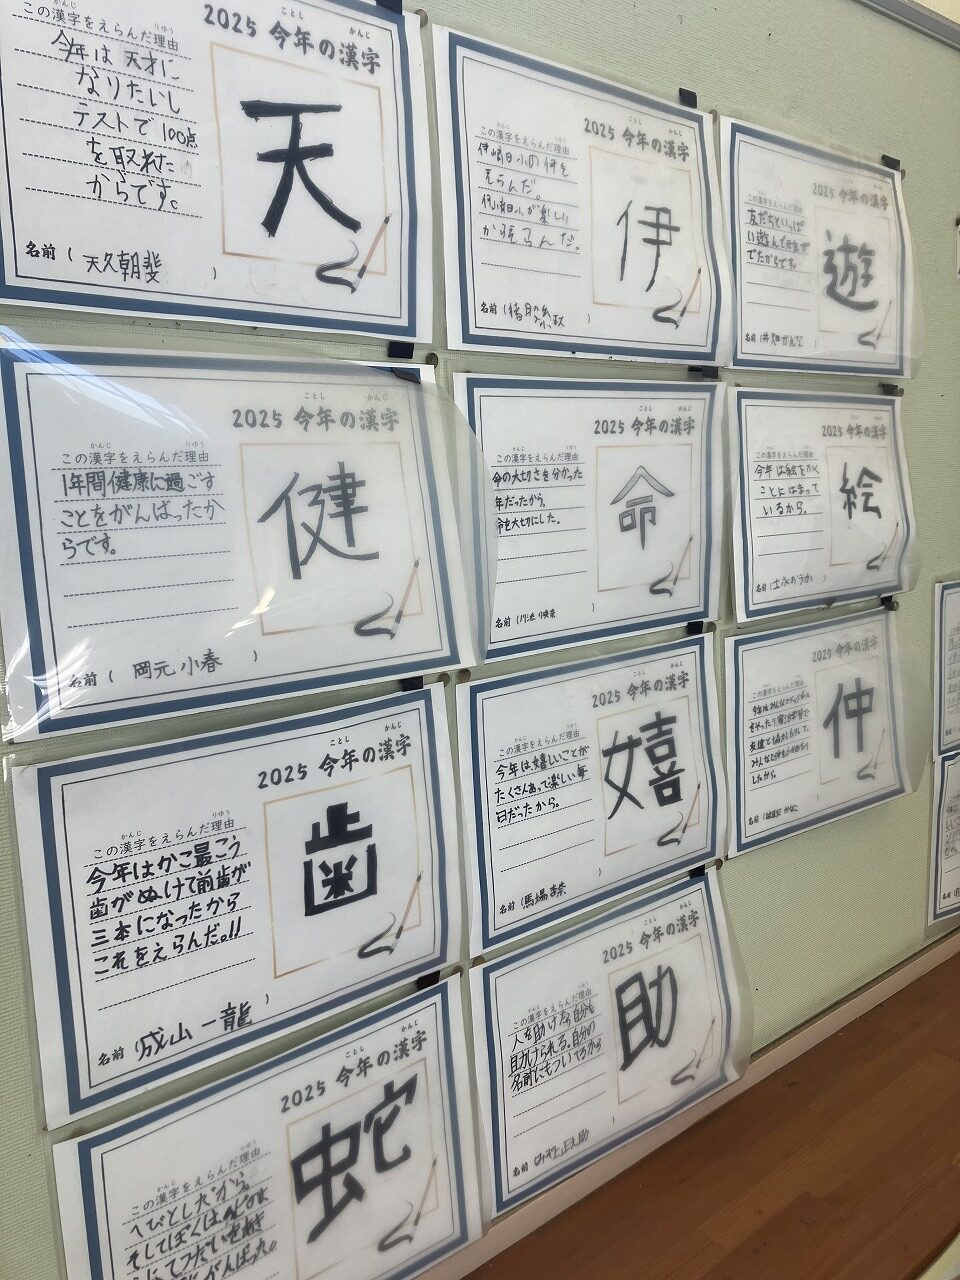 2025 今年の漢字
天
この漢字をえらんだ理由
今年は天才に
なりたいし
テストで100点
を取れた
からです。
名前 ( 天久朝斐 )
2025 今年の漢字
伊
この漢字をえらんだ理由
小の伊を
えらんだ。
が楽しい
からえらんだ。
名前 ( )
2025 今年の漢字
遊
この漢字をえらんだ理由
友だちといっぱ
い遊んで元気で
でたからです。
名前 ( )
2025 今年の漢字
健
この漢字をえらんだ理由
1年間健康に過ごす
ことをがんばったか
らです。
名前 ( 岡元小春 )
2025 今年の漢字
命
この漢字をえらんだ理由
命の大切さを分かった
年だったから。
命を大切にした。
名前 ( )
2025 今年の漢字
絵
この漢字をえらんだ理由
今年は絵をかく
ことにはまって
いるから。
名前 ( )
2025 今年の漢字
歯
この漢字をえらんだ理由
今年はかこ最こう
歯がぬけて前歯が
三本になったから
これをえらんだ。!!
名前 ( 成山一龍 )
2025 今年の漢字
嬉
この漢字をえらんだ理由
今年は嬉しいことが
たくさんあって楽しい毎
日だったから。
名前 ( 馬場杏奈 )
2025 今年の漢字
仲
この漢字をえらんだ理由
今年はみんなで
をやったり宿泊学習で
友達と協力したりして、
みんなで仲を深めたり
したから。
名前 ( )
2025 今年の漢字
蛇
この漢字をえらんだ理由
へびとしだから。
そしてぼくは
がんばった。
2025 今年の漢字
助
この漢字をえらんだ理由
人を助けたら自分も
助けられる。自分の
名前にもついてるから
名前 ( )